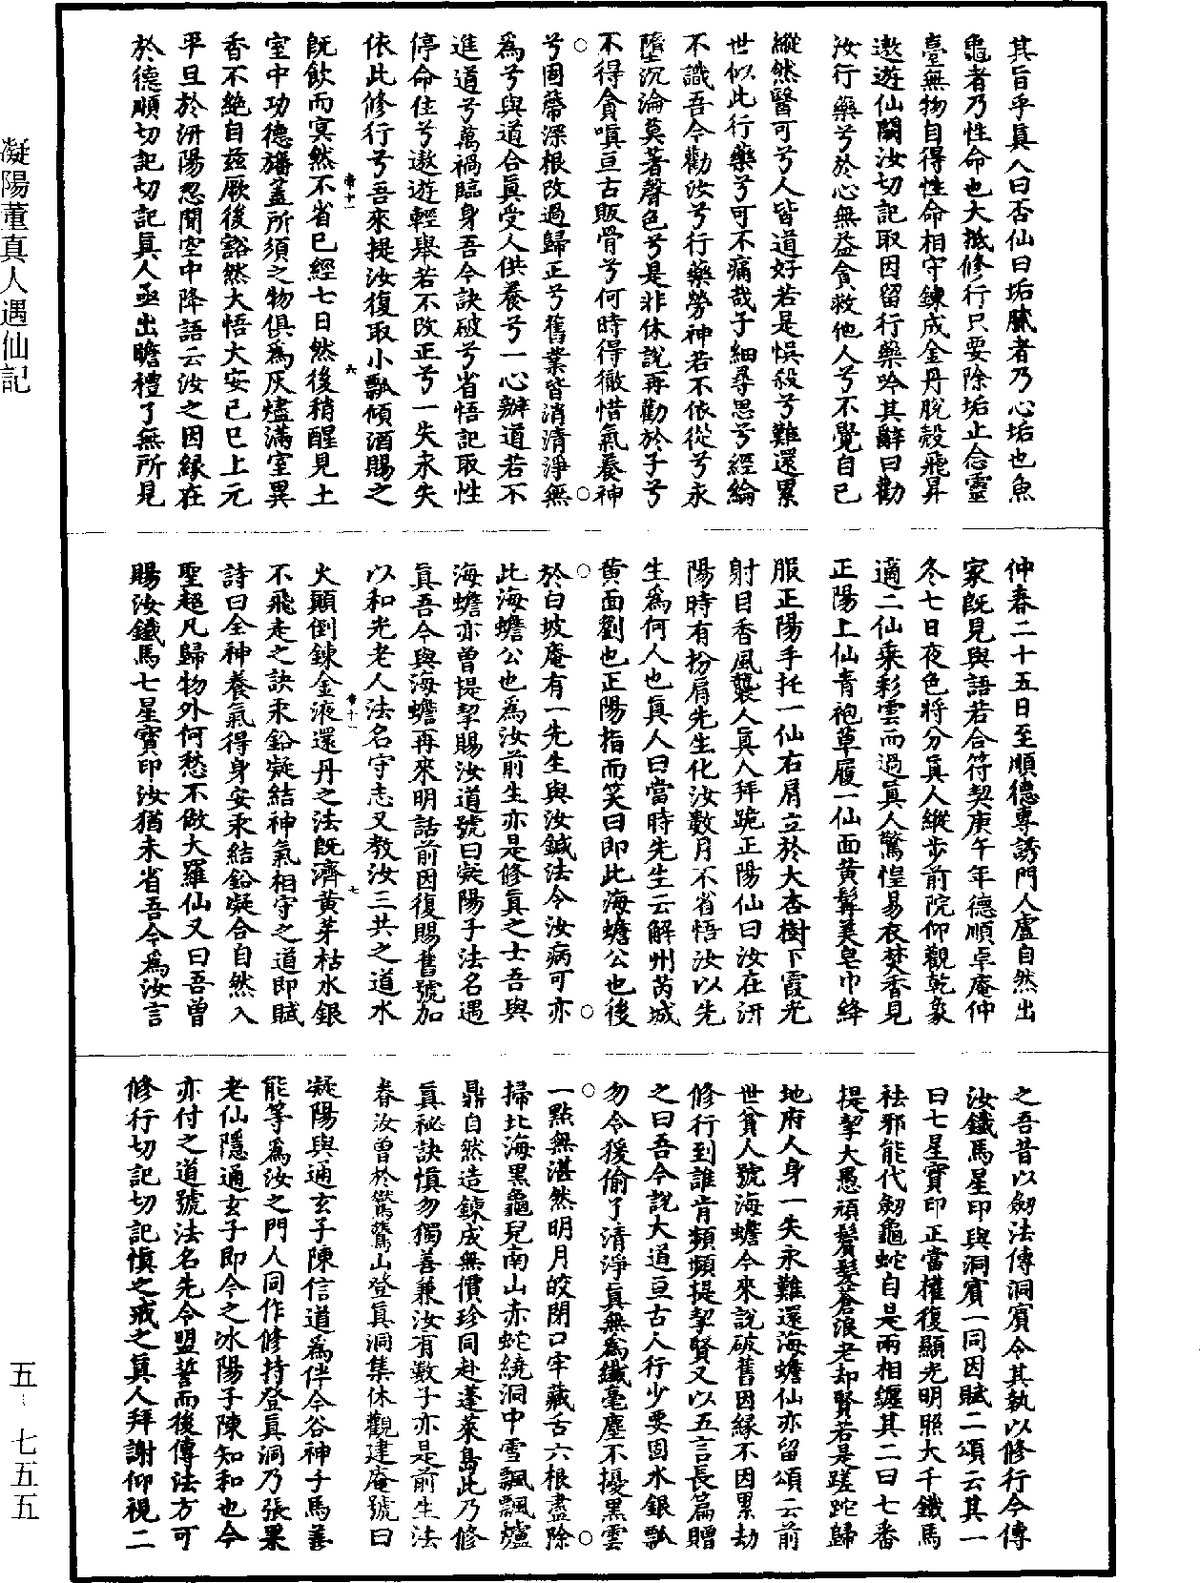 其旨乎眞人曰否仙曰垢膩者乃心垢也魚
龜者乃性命也大抵修行只要除垢止念靈
臺無物自得性命相守鍊成金丹脫殼飛昇
遨遊仙闕汝切記取因留行藥吟其辭曰勸
汝行藥兮於心無益貪救他人兮不覺自己
縱然醫可兮人皆道好若是悞殺兮難還累
世似此行藥兮可不痛哉子細尋思兮經綸
不識吾今勸汝兮行藥勞神若不依從兮永
墮沉淪莫著聲色兮是非休說再勸於子兮
不得貪嗔亘古販骨兮何時得徹惜氣養神
兮固蔕深根改過歸正兮舊業皆消清淨無
爲兮與道合眞受人供養兮一心辦道若不
進道兮萬禍臨身吾今訣破兮省悟記取性
停命住兮遨遊輕舉若不改正兮一失永失
依此修行兮吾來提汝復取小瓢傾酒賜之
旣飲而冥然不省已經七日然後稍醒見土
室中功德旛蓋所須之物俱爲灰燼滿室異
香不絶自玆厥後豁然大悟大安己巳上元
平旦於汧陽忽聞空中降語云汝之因緣在
於德順切記切記眞人亟出瞻禮了無所見
仲春二十五日至順德專誘門人盧自然出
家旣見與語若合符契庚午年德順卓庵仲
冬七日夜色將分眞人縱步前院仰觀乾象
適二仙乘彩雲而過眞人驚惶易衣焚香見
正陽上仙青袍草履一仙面黄髯美皂巾絳
服正陽手托一仙右肩立於大杏樹下霞光
射目香風襲人眞人拜跪正陽仙曰汝在汧
陽時有扮屑先生化汝數月不省悟汝以先
生爲何人也眞人曰當時先生云解州芮城
黄面劉也正陽指而笑曰即此海蟾公也後
於白坡庵有一先生與汝鍼法令汝病可亦
此海蟾公也爲汝前生亦是修眞之士吾與
海蟾亦曾提挈賜汝道號曰凝陽子法名遇
眞吾今與海蟾再來明話前因復賜舊號加
以和光老人法名守志又教汝三共之道水
火顚倒鍊金液還丹之法旣濟黄芽枯水銀
不飛走之訣汞鉛凝結神氣相守之道即賦
詩曰全神養氣得身安汞結鉛凝合自然入
聖超凡歸物外何愁不做大羅仙又曰吾曾
賜汝鐵馬七星寶印汝猶未省吾今爲汝言
之吾昔以劒法傳洞賓令其執以修行今傳
汝鐵馬星印與洞賓一同因賦二頌云其一
曰七星寶印正當權復顯光明照大千鐵馬
祛邪能代劒龜蛇自是兩相纏其二曰七番
提挈大愚頑鬢髮蒼浪老却賢若是蹉跎歸
地府人身一失永難還海蟾仙亦留頌云前
世貧人號海蟾今來說破舊因緣不因累劫
修行到誰肯頻頻提挈賢又以五言長篇贈
之曰吾今說大道亘古人行少要固水銀瓢
勿令猨偷了清淨眞無爲纖毫塵不擾黒雲
一點無湛然明月皎閉口牢藏舌六根盡除
掃北海黒龜兒南山赤蛇繞洞中雪飄飄爐
鼎自然造鍊成無價珍同赴蓬萊島此乃修
眞秘訣愼勿獨善兼汝有數子亦是前生法
眷汝曾於鸑鷟山登眞洞集休觀建庵號曰
凝陽與通玄子陳信道爲伴今谷神子馬善
能等爲汝之門人同作修持登眞洞乃張果
老仙隱通玄子即今之冰陽子陳知和也今
亦付之道號法名先令盟誓而後傳法方可
修行切記切記愼之戒之眞人拜謝仰視二
凝陽董真人遇仙記
五-七五五